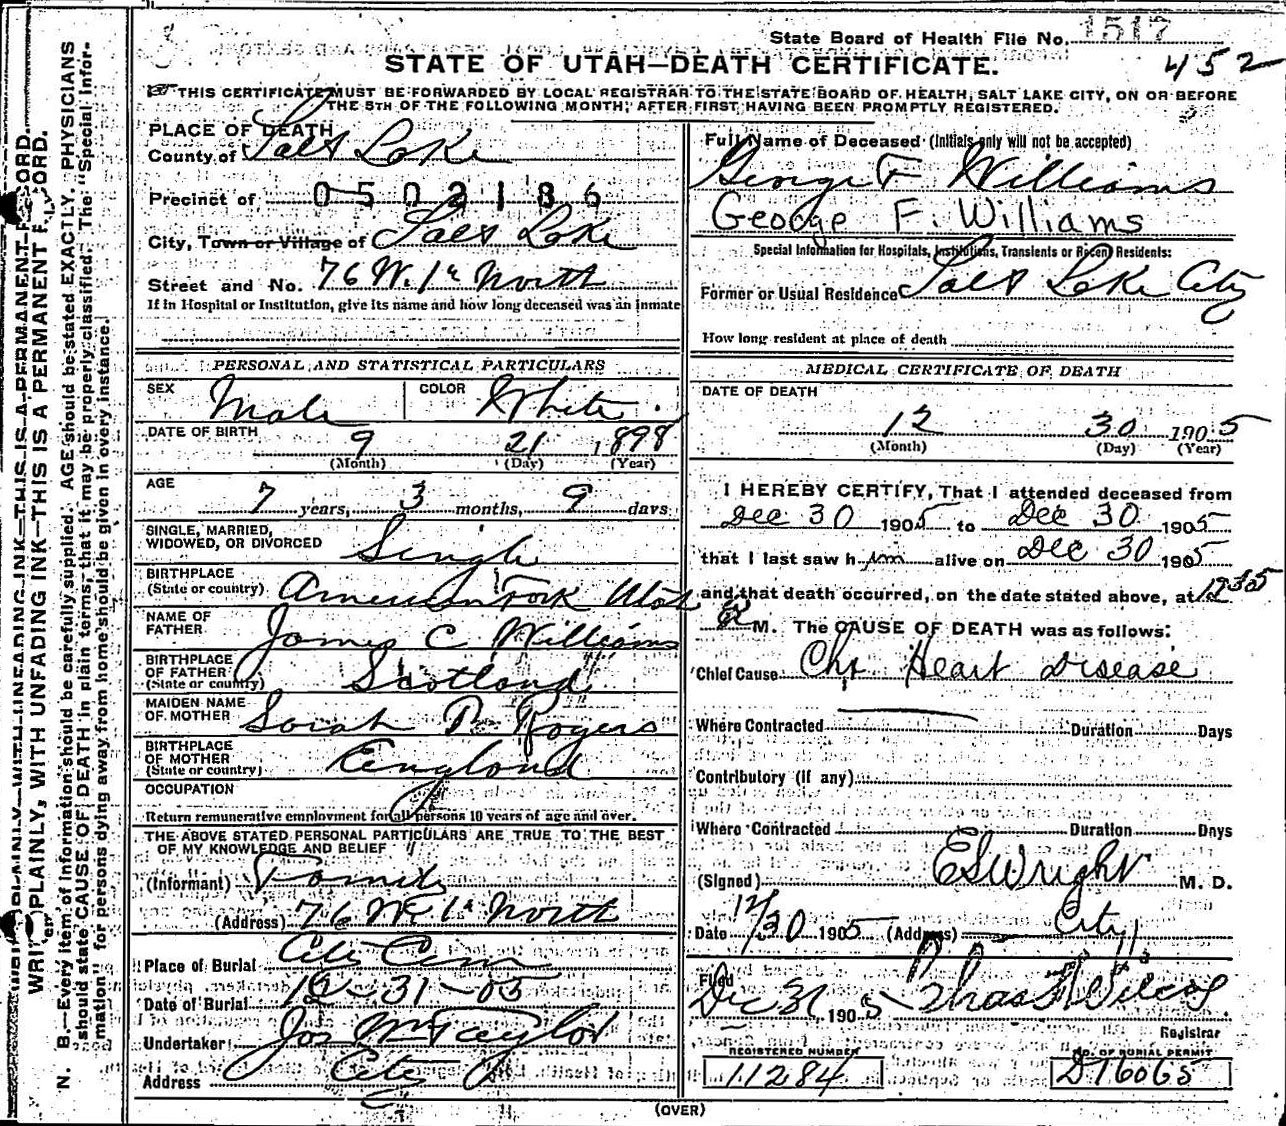 State Board of Health File No. 1517
452
STATE OF UTAH—DEATH CERTIFICATE.
THIS CERTIFICATE MUST BE FORWARDED BY LOCAL REGISTRAR TO THE STATE BOARD OF HEALTH, SALT LAKE CITY, ON OR BEFORE
THE 5TH OF THE FOLLOWING MONTH, AFTER FIRST HAVING BEEN PROMPTLY REGISTERED.
WRITE PLAINLY, WITH UNFADING INK—THIS IS A PERMANENT RECORD.
N. B.—Every item of information should be carefully supplied. AGE should be stated EXACTLY. PHYSICIANS
should state CAUSE OF DEATH in plain terms, that it may be properly classified. The "Special Infor-
mation" for persons dying away from home should be given in every instance.
PLACE OF DEATH
County of Salt Lake
Precinct of 0502186
City, Town or Village of Salt Lake
Street and No. 76 W. 1st North
If in Hospital or Institution, give its name and how long deceased was an inmate
PERSONAL AND STATISTICAL PARTICULARS
SEX Male COLOR White
DATE OF BIRTH 9 21 1898
(Month) (Day) (Year)
AGE 7 years, 3 months, 9 days
SINGLE, MARRIED,
WIDOWED, OR DIVORCED Single
BIRTHPLACE
(State or country) American Fork Utah
NAME OF
FATHER James C Williams
BIRTHPLACE
OF FATHER
(State or country) Scotland
MAIDEN NAME
OF MOTHER Sarah P. Rogers
BIRTHPLACE
OF MOTHER
(State or country) England
OCCUPATION
Return remunerative employment for all persons 10 years of age and over.
THE ABOVE STATED PERSONAL PARTICULARS ARE TRUE TO THE BEST
OF MY KNOWLEDGE AND BELIEF
(Informant) Family
(Address) 76 W 1st North
Place of Burial City Cem
Date of Burial 12-31-05
Undertaker Jos Wm Taylor
Address City
Full Name of Deceased (Initials only will not be accepted)
George F Williams
George F. Williams
Special Information for Hospitals, Institutions, Transients or Recent Residents:
Former or Usual Residence Salt Lake City
How long resident at place of death
MEDICAL CERTIFICATE OF DEATH
DATE OF DEATH
12 30 1905
(Month) (Day) (Year)
I HEREBY CERTIFY, That I attended deceased from
Dec 30 1905 to Dec 30 1905
that I last saw him alive on Dec 30 1905
and that death occurred, on the date stated above, at 1235
M. The CAUSE OF DEATH was as follows:
Chief Cause Chr Heart Disease
Where Contracted Duration Days
Contributory (if any)
Where Contracted Duration Days
(Signed) ES Wright M. D.
Date 12/30 1905 (Address) City
Filed
Dec 31 1905
Registrar
REGISTERED NUMBER
11284
NO. OF BURIAL PERMIT
D16065
(OVER)